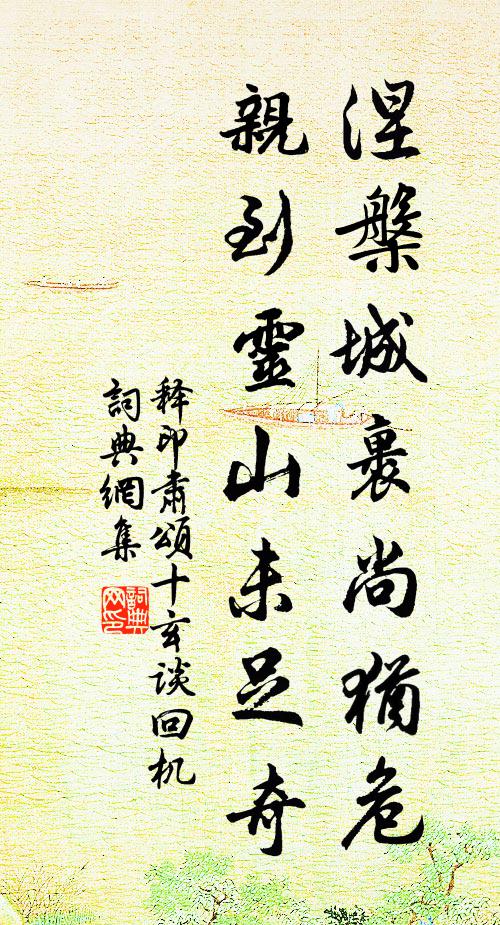 涅槃城裏尚猶危
親到靈山未足奇
释印肃頌十玄谈回机
詞典網集
詞典网印